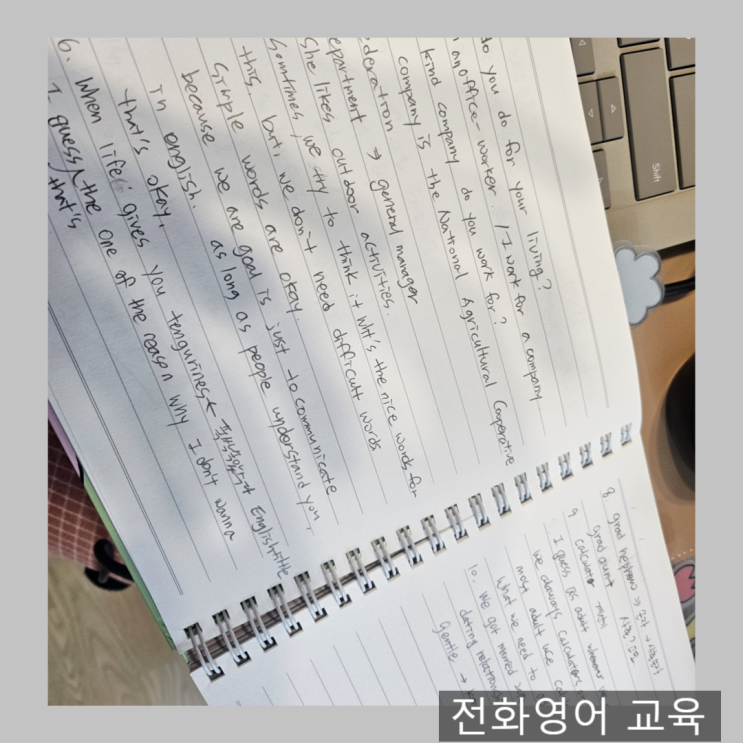 do you do for your living?
an office-worker. / I work for a company
kind company do you work for?
company is the National Agricultural Cooperative
deration
epartment → general manager
She likes outdoor activities.
Sometimes, we try to think it wht's the nice words for
this but, we don't need difficult words
Simple words are okay.
because we are goal is just to communicate
in english. as long as people understand you,
that's okay.
6. When life gives you tengurines ← English title
I guess that's the one of the reason why I don't wanna
8 grand nephew ⇒
grand aunt
9 calculator
I guess as adult whenever
we always calculators
most adult use
What we need to
10. we got married
dating relation
Gentle →
Shift
전화영어 교육